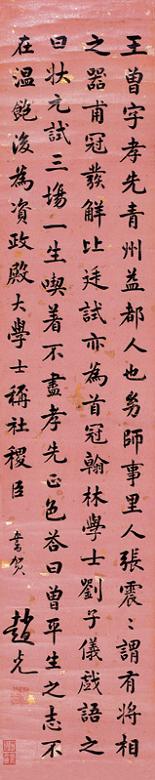 王曾字孝先青州益都人也幼師事里人張震〻謂有將相
之器甫冠發解比廷試亦為首冠翰林學士劉子儀戲語之
曰狀元試三場一生喫着不盡孝先正色答曰曾平生之志不
在溫飽後為資政殿大學士稱社稷臣
趙光